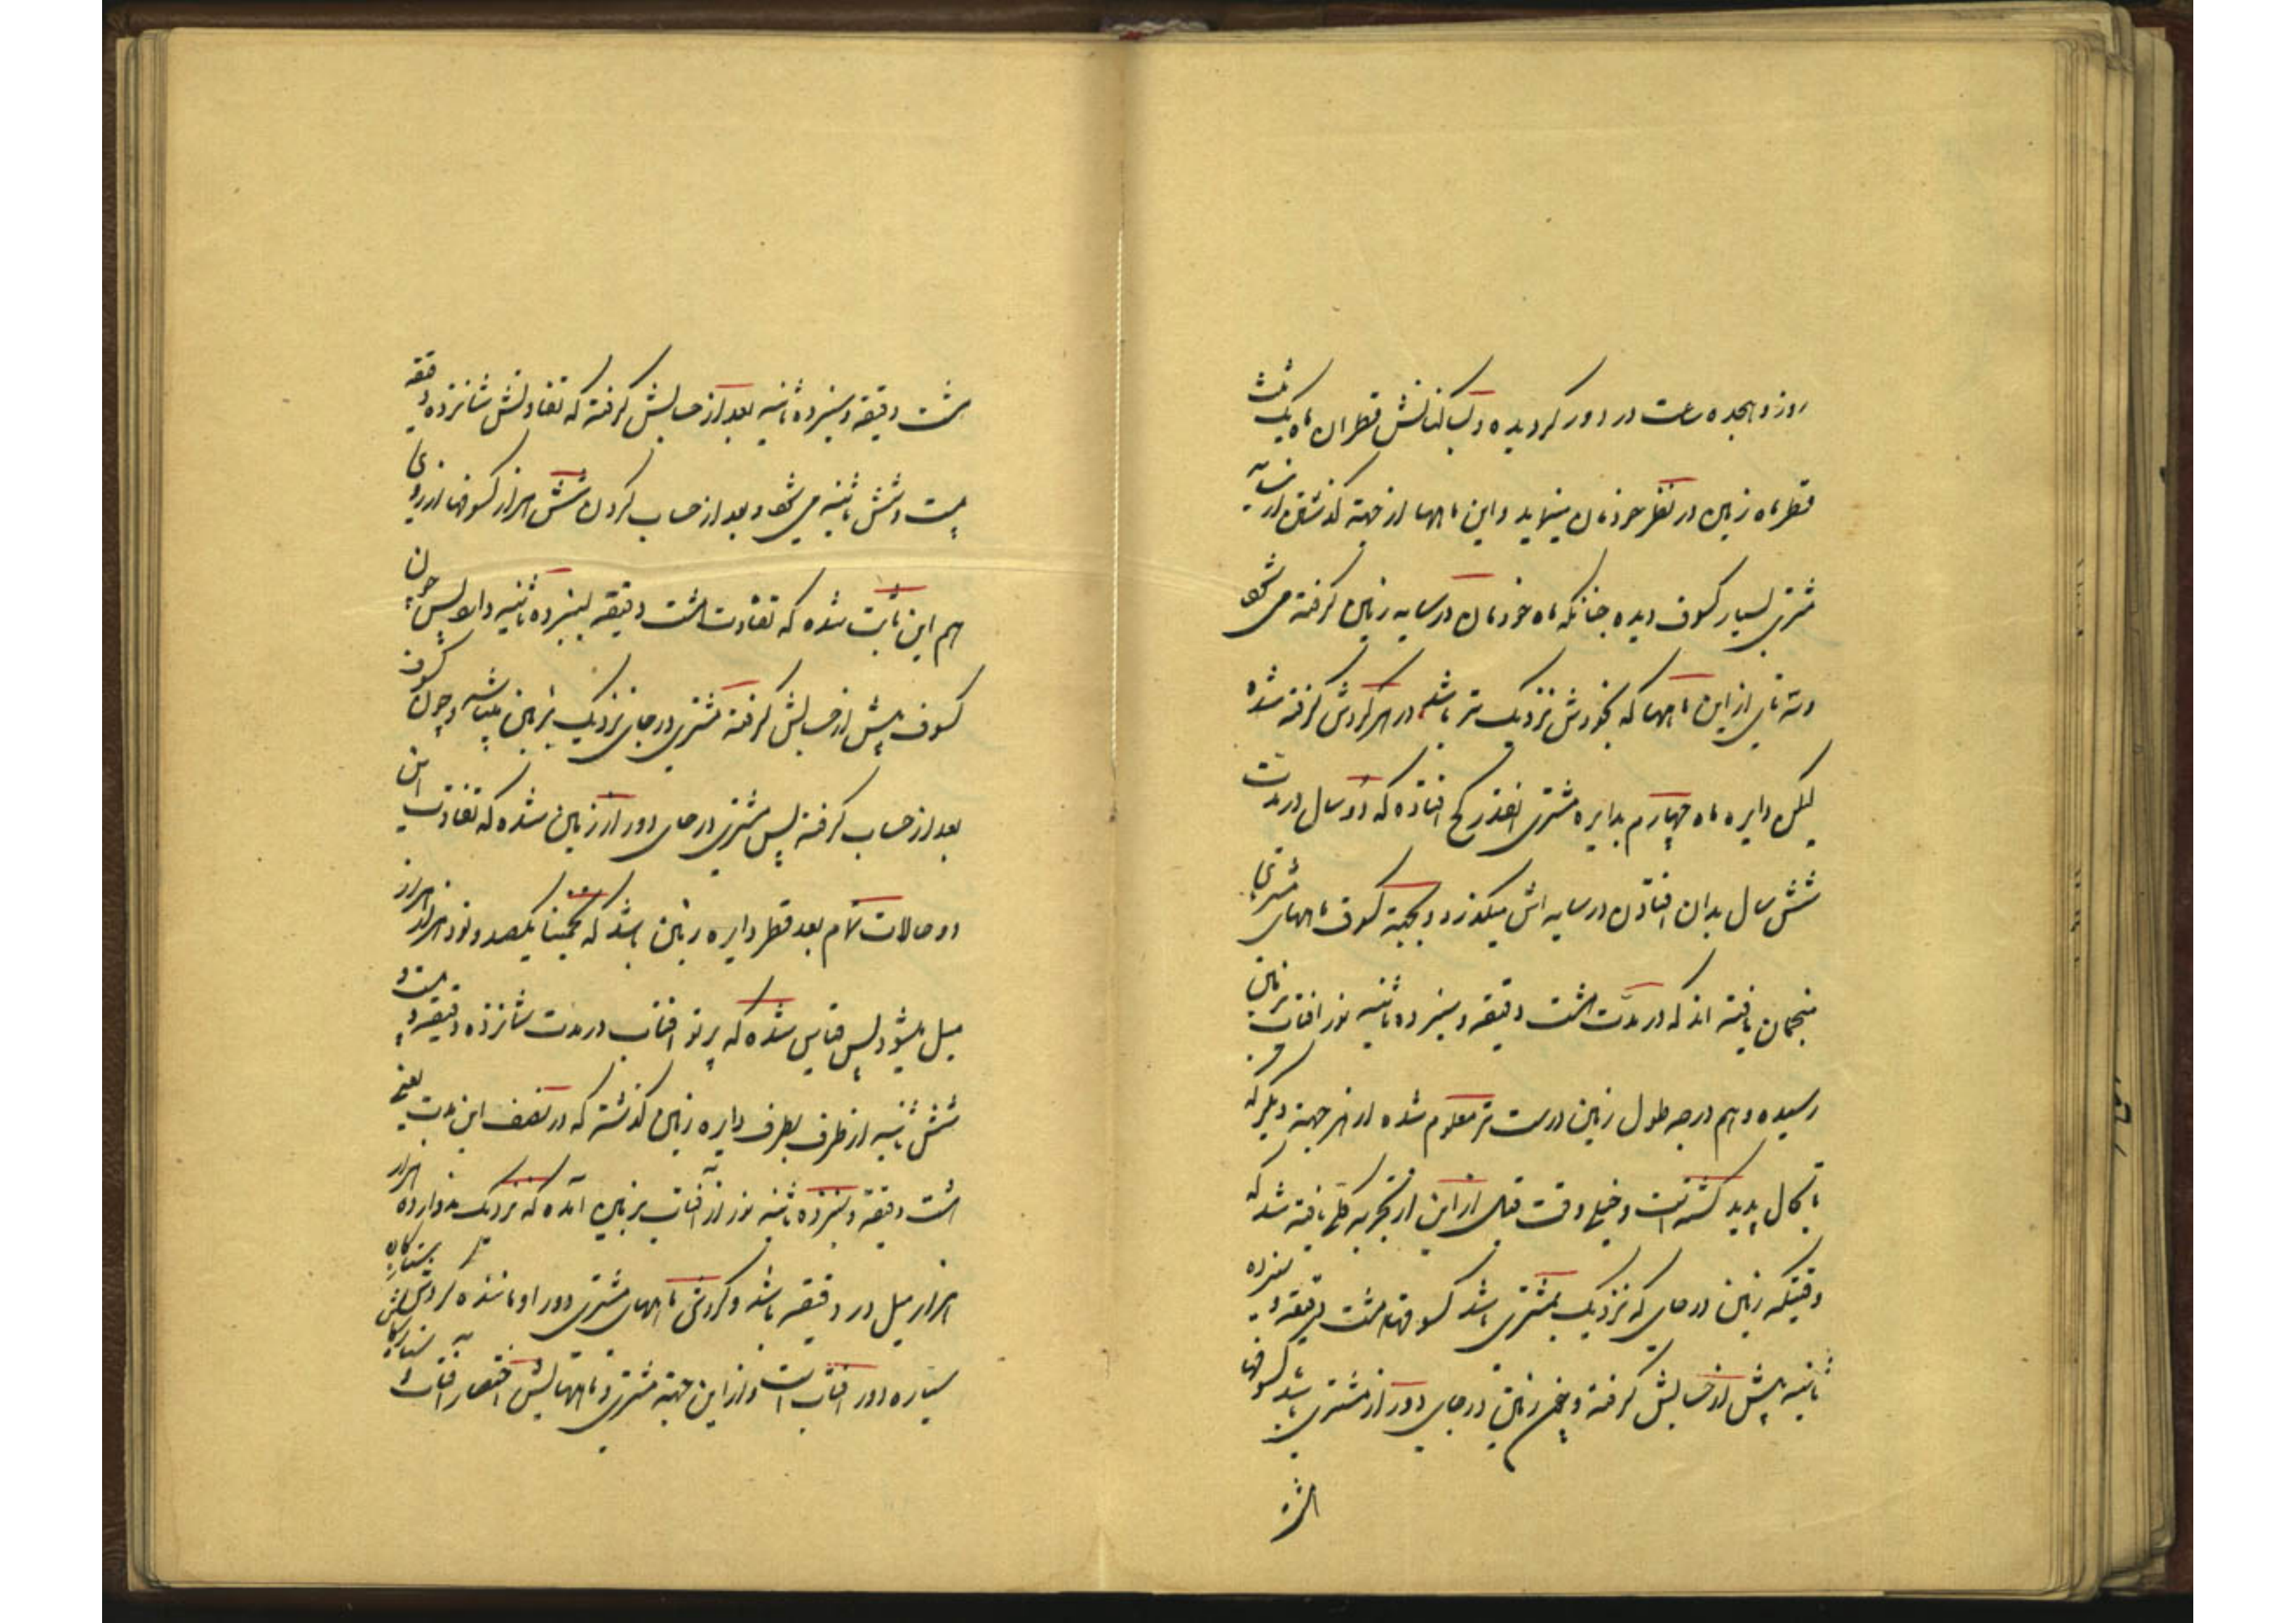 روز و هجده ساعت در دور کردیده و ساکنانش قطر ان ماه یک ثلث
قطر ماه زمین در نظر خودمان مینماید و این ماهها از جهة کذشتن از سایه
مشتری بسیار کسوف دیده چنانکه ماه خودمان در سایه زمین کرفته می شود
و سه تای از این ماهها که بخودش نزدیک تر باشد در هر کردش کرفته شده
لیکن دایره ماه چهارم بدایره مشتری انقدر کج افتاده که دو سال در مدت
شش سال بدان افتادن در سایه اش میکذرد و بجهة کسوف ماههای مشتری
منجمان یافته اند که در مدت هشت دقیقه و سیزده ثانیه نور افتاب بزمین
رسیده و هم درجه طول زمین درست تر معلوم شده از هر جهة دیگر که
تا بحال پدید کشته است و خیلی وقت قبل از این از تجربه کلی یافته شد که
وقتیکه زمین در جای که نزدیک بمشتری باشد کسوفها هشت دقیقه و سیزده
ثانیه پیش از حسابش کرفته و چون زمین در جای دور از مشتری باشد کسوفها
هشت دقیقه و سیزده ثانیه بعد از حسابش کرفته که تفاوتش شانزده دقیقه
بیست و شش ثانیه می شود و بعد از حساب کردن شش هزار کسوفها از روی
هم این ثابت شده که تفاوت هشت دقیقه سیزده ثانیه دارد پس چون
کسوف پیش از حسابش کرفته مشتری در جای نزدیک بزمین میباشد و چون کسوف
بعد از حساب کرفته پس مشتری در جای دور از زمین شده که تفاوت این
دو حالات تمام بعد قطر دایره زمین باشد که تخمینا یکصد و نود هزار هزار
میل میشود پس قیاس شده که پرتو افتاب در مدت شانزده دقیقه و بیست و
شش ثانیه از طرف بطرف دایره زمین کذشته که در نصف این مدت یعنی
هشت دقیقه و سیزده ثانیه نور از آفتاب بر زمین آمده که نزدیک بدوازده هزار
هزار میل در دقیقه باشد و کردش ماههای مشتری دور او مانند کردش
سیاره دور افتاب است و از این جهة مشتری و ماههایش اختصار آفتاب و